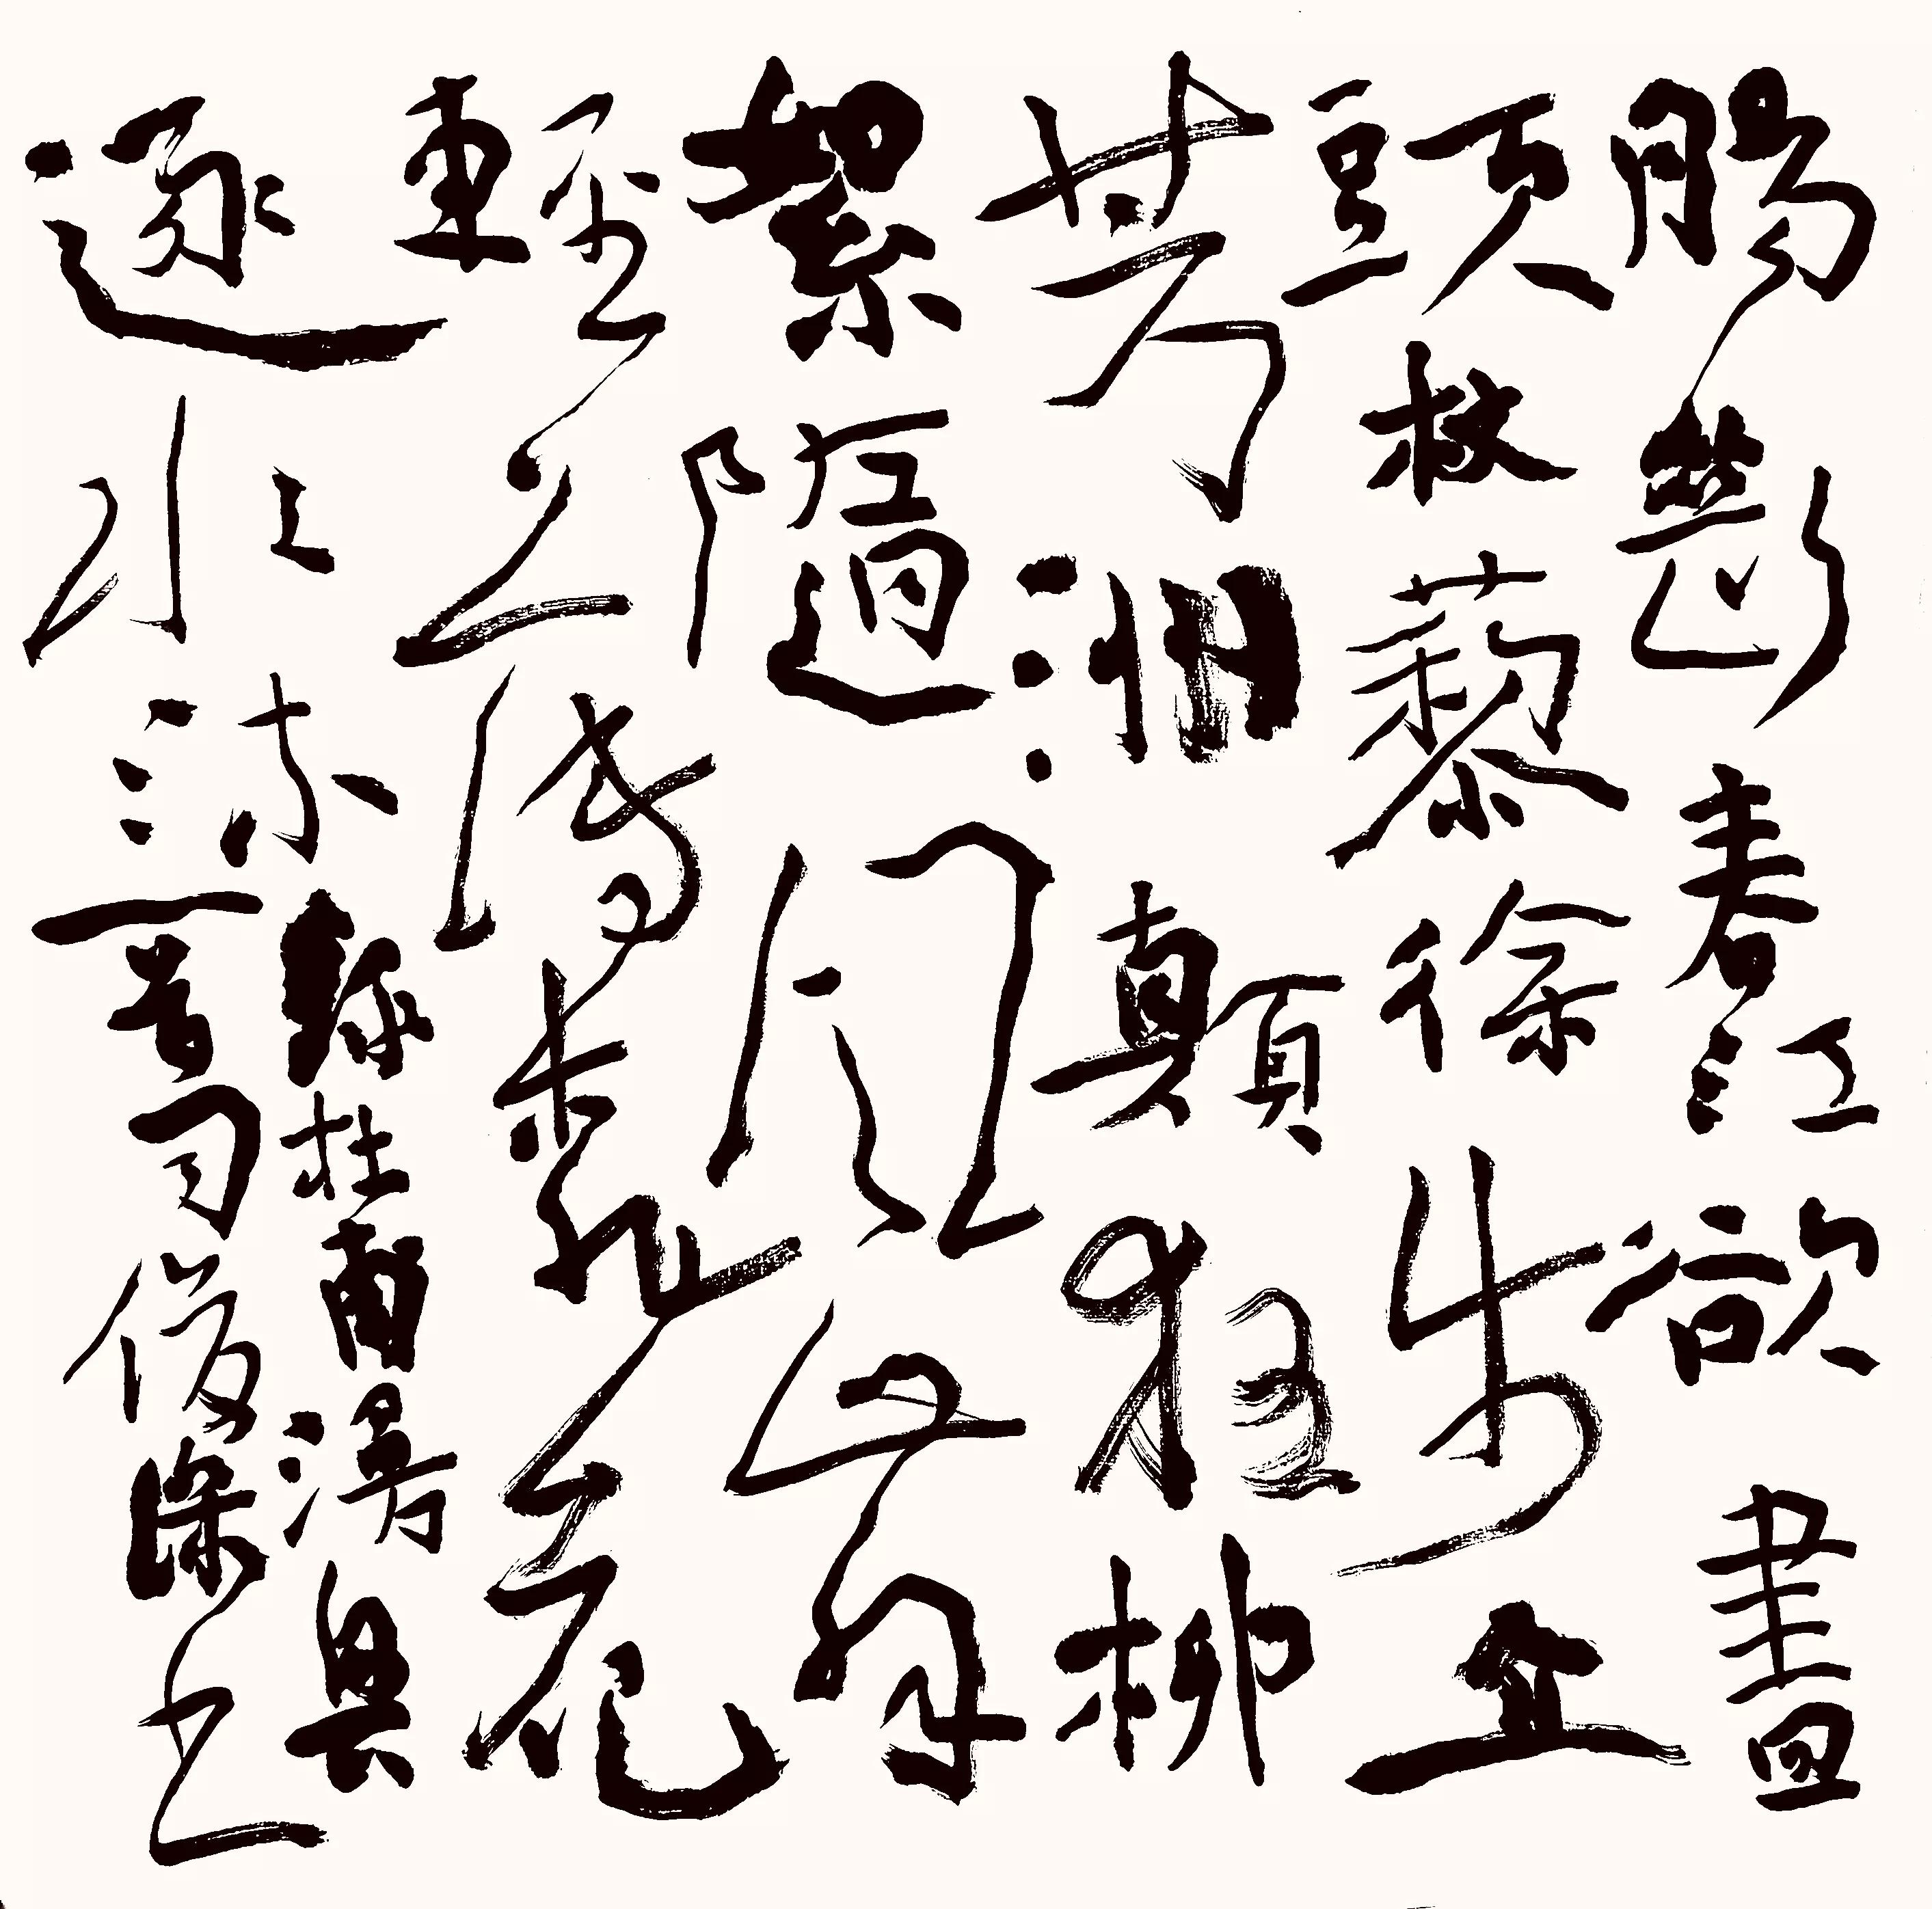 腸斷春江欲盡
頭杖藜徐步立
芳洲顛狂柳
絮隨風舞
輕薄桃花
逐水流
錄杜甫漫興